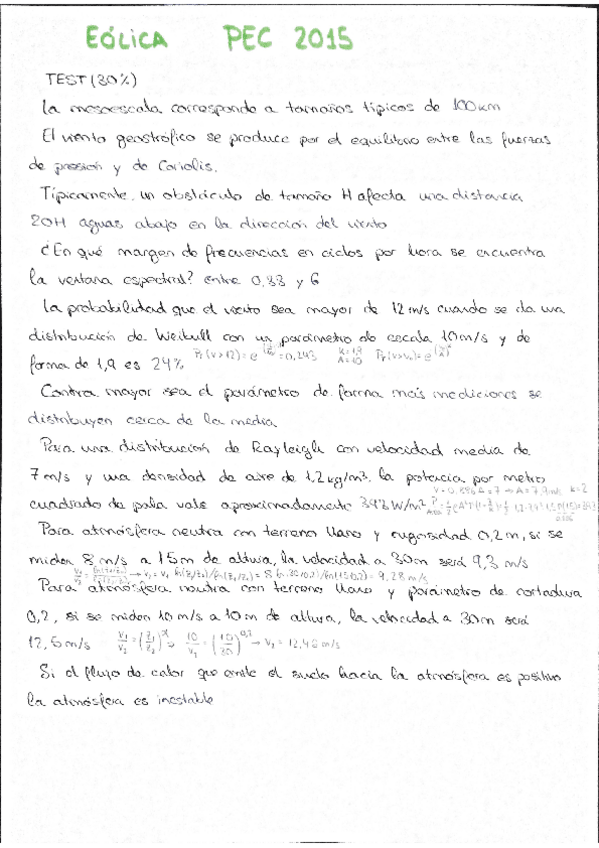 EÓLICA PEC 2015
TEST (30%)
La mesoescala corresponde a tamaños típicos de 100km
El viento geostrófico se produce por el equilibrio entre las fuerzas
de presión y de Coriolis.
Típicamente, un obstáculo de tamaño H afecta una distancia
20H aguas abajo en la dirección del viento
¿En qué margen de frecuencias en ciclos por hora se encuentra
la ventana espectral? entre 0,33 y 6
La probabilidad que el viento sea mayor de 12 m/s cuando se da una
distribución de Weibull con un parámetro de escala 10m/s y de
forma de 1,9 es 24%
Contra mayor sea el parámetro de forma más mediciones se
distribuyen cerca de la media
Para una distribución de Rayleigh con velocidad media de
7 m/s y una densidad de aire de 1,2 kg/m³, la potencia por metro
cuadrado de pala vale aproximadamente 392 W/m²
Para atmósfera neutra con terreno llano y rugosidad 0,2 m, si se
miden 8 m/s a 15m de altura, la velocidad a 30m será 9,3 m/s
Para atmósfera neutra con terreno llano y parámetro de cortadura
0,2, si se miden 10 m/s a 10m de altura, la velocidad a 30m será
12,5 m/s → V₂ = 12,46 m/s
Si el flujo de calor que emite el suelo hacia la atmósfera es positivo
la atmósfera es inestable